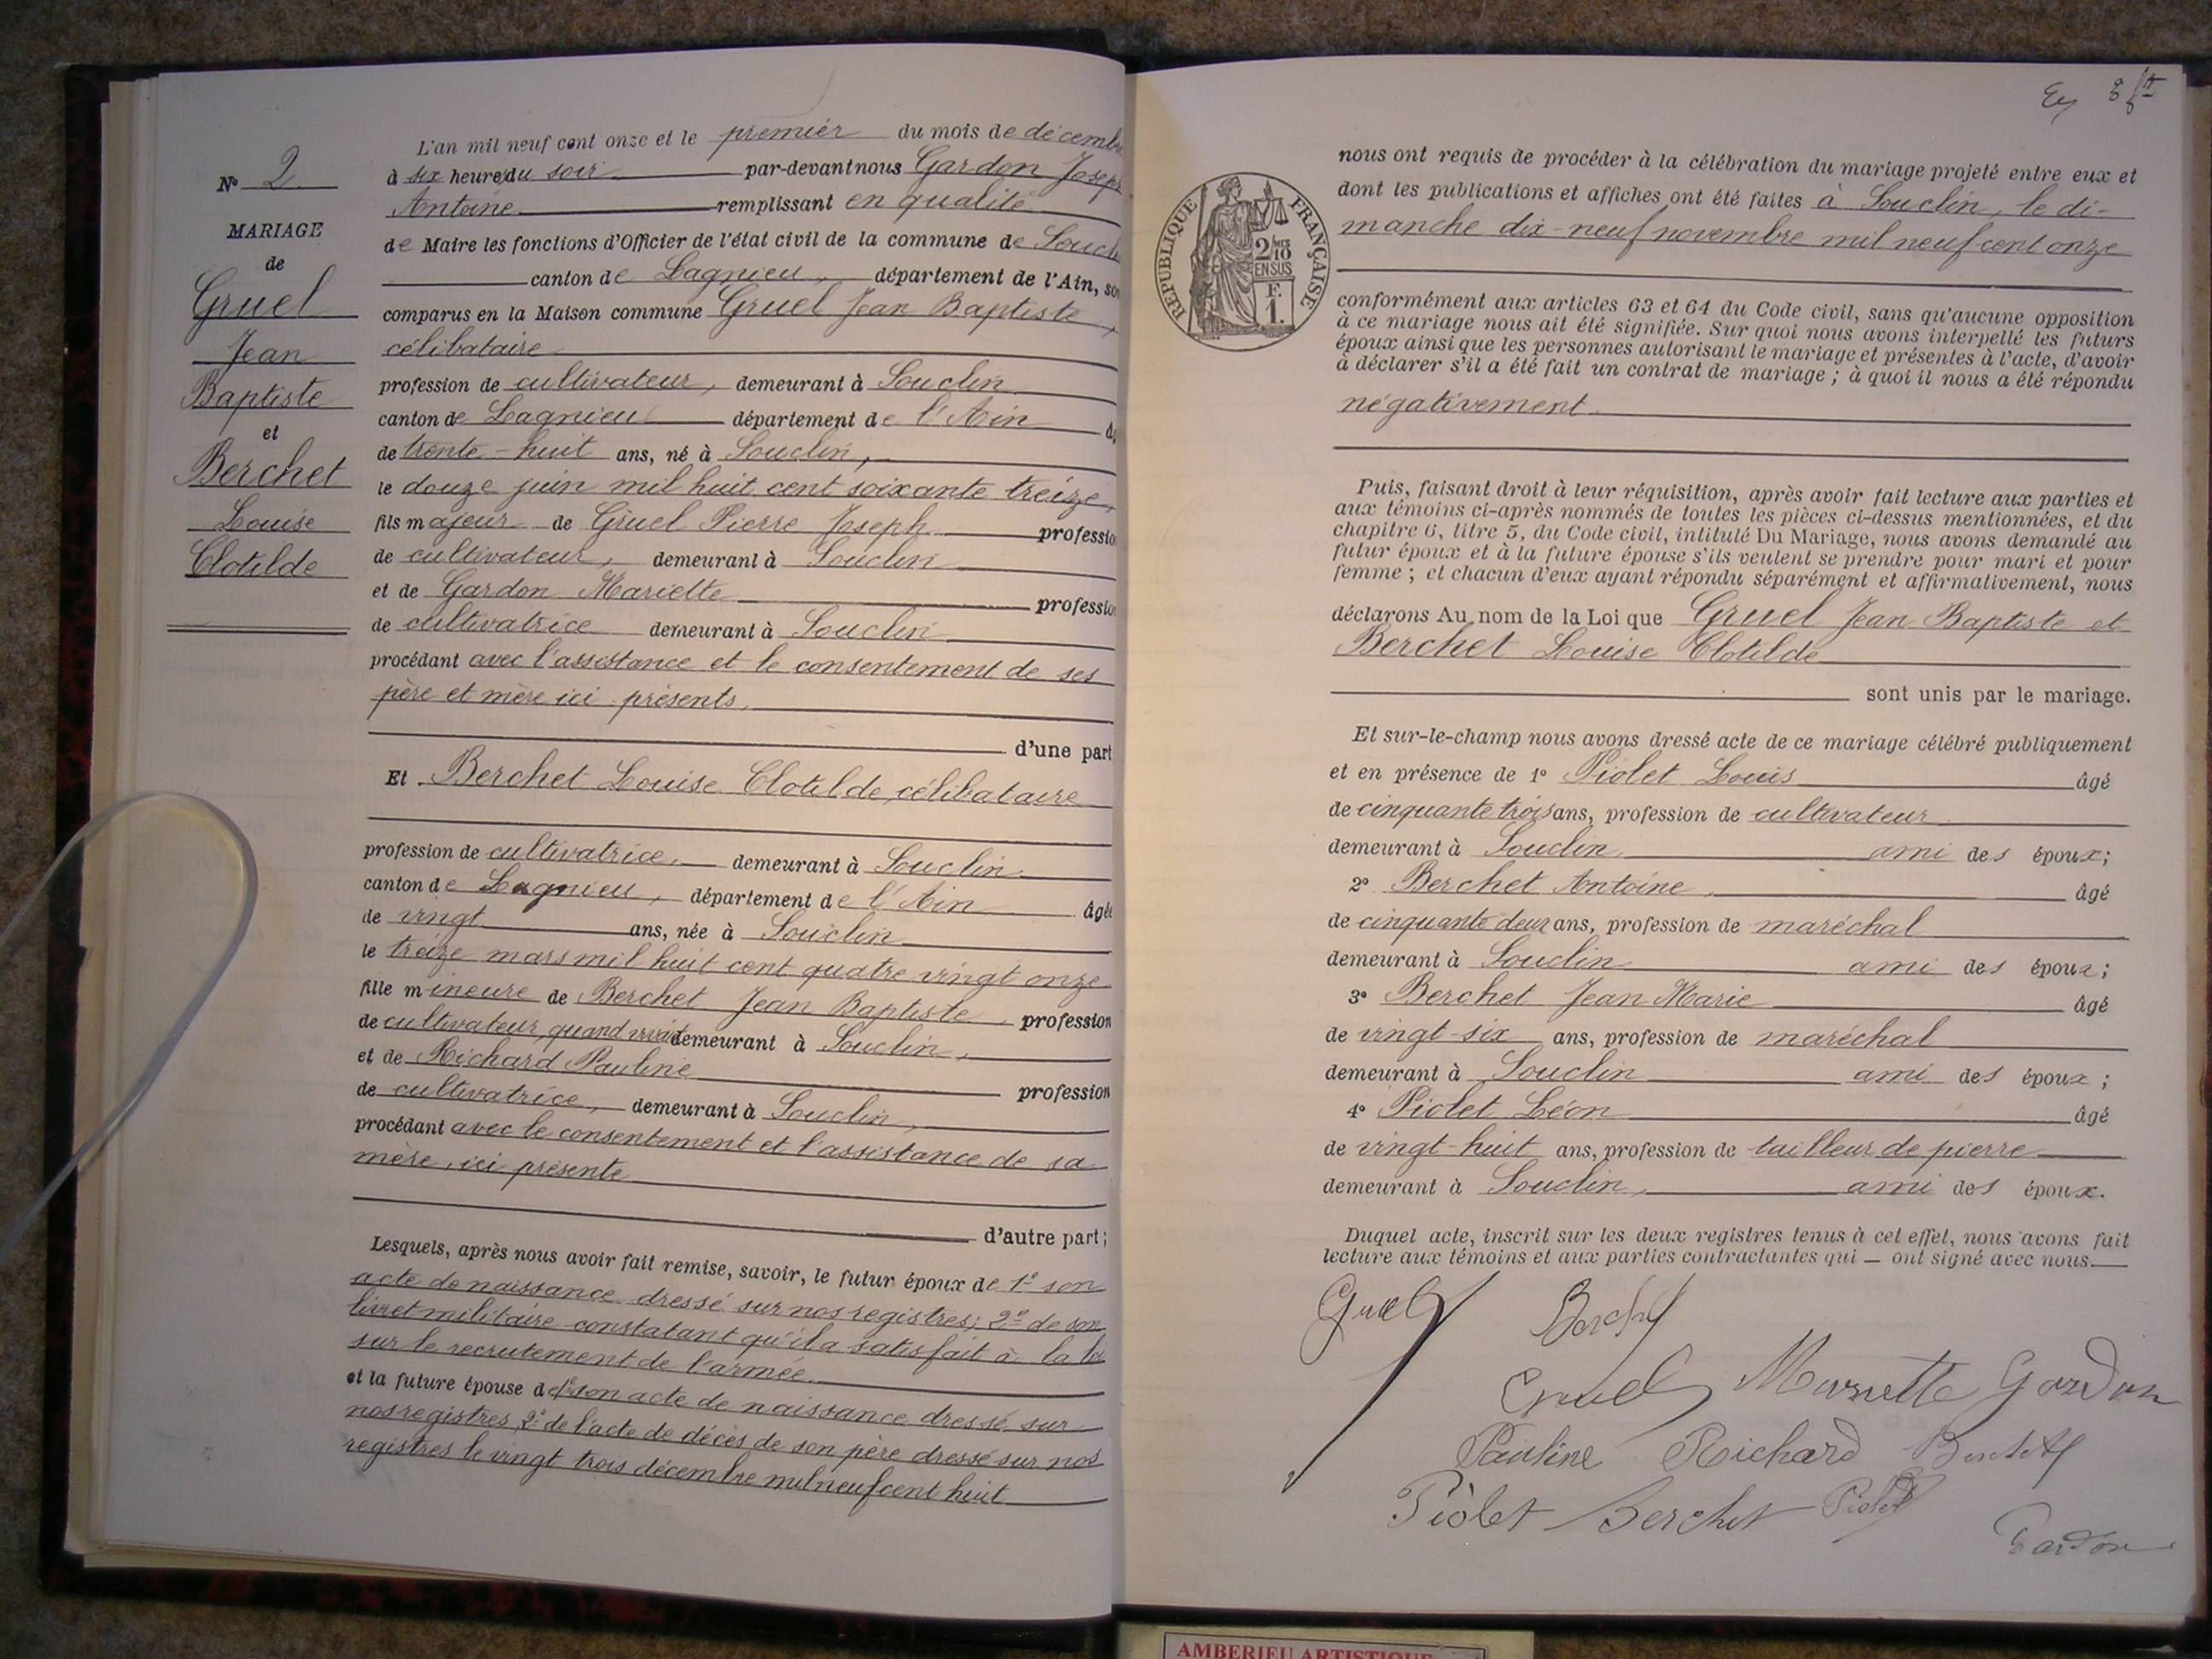 N° 2
MARIAGE
de
Gruel
Jean
Baptiste
et
Berchet
Louise
Clotilde
L'an mil neuf cent onze et le premier du mois de décembre
à six heures du soir par-devant nous Gardon Joseph
Antoine remplissant en qualité
de Maire les fonctions d'Officier de l'état civil de la commune de Souclin
canton de Lagnieu, département de l'Ain, so
comparus en la Maison commune Gruel Jean Baptiste,
célibataire
profession de cultivateur, demeurant à Souclin
canton de Lagnieu département de l'Ain
de trente-huit ans, né à Souclin,
le douze juin mil huit cent soixante treize,
fils majeur de Gruel Pierre Joseph professio
de cultivateur, demeurant à Souclin
et de Gardon Mariette professio
de cultivatrice demeurant à Souclin
procédant avec l'assistance et le consentement de ses
père et mère ici présents.
d'une part
Et Berchet Louise Clotilde, célibataire
profession de cultivatrice, demeurant à Souclin
canton de Lagnieu, département de l'Ain âgée
de vingt ans, née à Souclin
le treize mars mil huit cent quatre vingt onze
fille mineure de Berchet Jean Baptiste, profession
de cultivateur, quand vivait demeurant à Souclin,
et de Richard Pauline profession
de cultivatrice, demeurant à Souclin,
procédant avec le consentement et l'assistance de sa
mère, ici présente
d'autre part;
Lesquels, après nous avoir fait remise, savoir, le futur époux de 1° son
acte de naissance dressé sur nos registres; 2° de son
livret militaire constatant qu'il a satisfait à la loi
sur le recrutement de l'armée.
et la future épouse de 1° son acte de naissance dressé sur
nos registres, 2° de l'acte de décès de son père dressé sur nos
registres le vingt trois décembre mil neuf cent huit
REPUBLIQUE FRANÇAISE
2/10
EN SUS
F.
1.
nous ont requis de procéder à la célébration du mariage projeté entre eux et
dont les publications et affiches ont été faites à Souclin, le di-
manche dix-neuf novembre mil neuf cent onze
conformément aux articles 63 et 64 du Code civil, sans qu'aucune opposition
à ce mariage nous ait été signifiée. Sur quoi nous avons interpellé les futurs
époux ainsi que les personnes autorisant le mariage et présentes à l'acte, d'avoir
à déclarer s'il a été fait un contrat de mariage; à quoi il nous a été répondu
négativement
Puis, faisant droit à leur réquisition, après avoir fait lecture aux parties et
aux témoins ci-après nommés de toutes les pièces ci-dessus mentionnées, et du
chapitre 6, titre 5, du Code civil, intitulé Du Mariage, nous avons demandé au
futur époux et à la future épouse s'ils veulent se prendre pour mari et pour
femme; et chacun d'eux ayant répondu séparément et affirmativement, nous
déclarons Au nom de la Loi que Gruel Jean Baptiste et
Berchet Louise Clotilde
sont unis par le mariage.
Et sur-le-champ nous avons dressé acte de ce mariage célébré publiquement
et en présence de 1° Piolet Louis âgé
de cinquante trois ans, profession de cultivateur
demeurant à Souclin, ami des époux;
2° Berchet Antoine, âgé
de cinquante deux ans, profession de maréchal
demeurant à Souclin ami des époux;
3° Berchet Jean Marie âgé
de vingt-six ans, profession de maréchal
demeurant à Souclin ami des époux;
4° Piolet Léon âgé
de vingt-huit ans, profession de tailleur de pierre
demeurant à Souclin, ami des époux.
Duquel acte, inscrit sur les deux registres tenus à cet effet, nous avons fait
lecture aux témoins et aux parties contractantes qui — ont signé avec nous.
Gruel Berchet
Gruel Mariette Gardon
Pauline Richard
Piolet Berchet Piolet
Gardon
AMBERIEU ARTISTIQUE